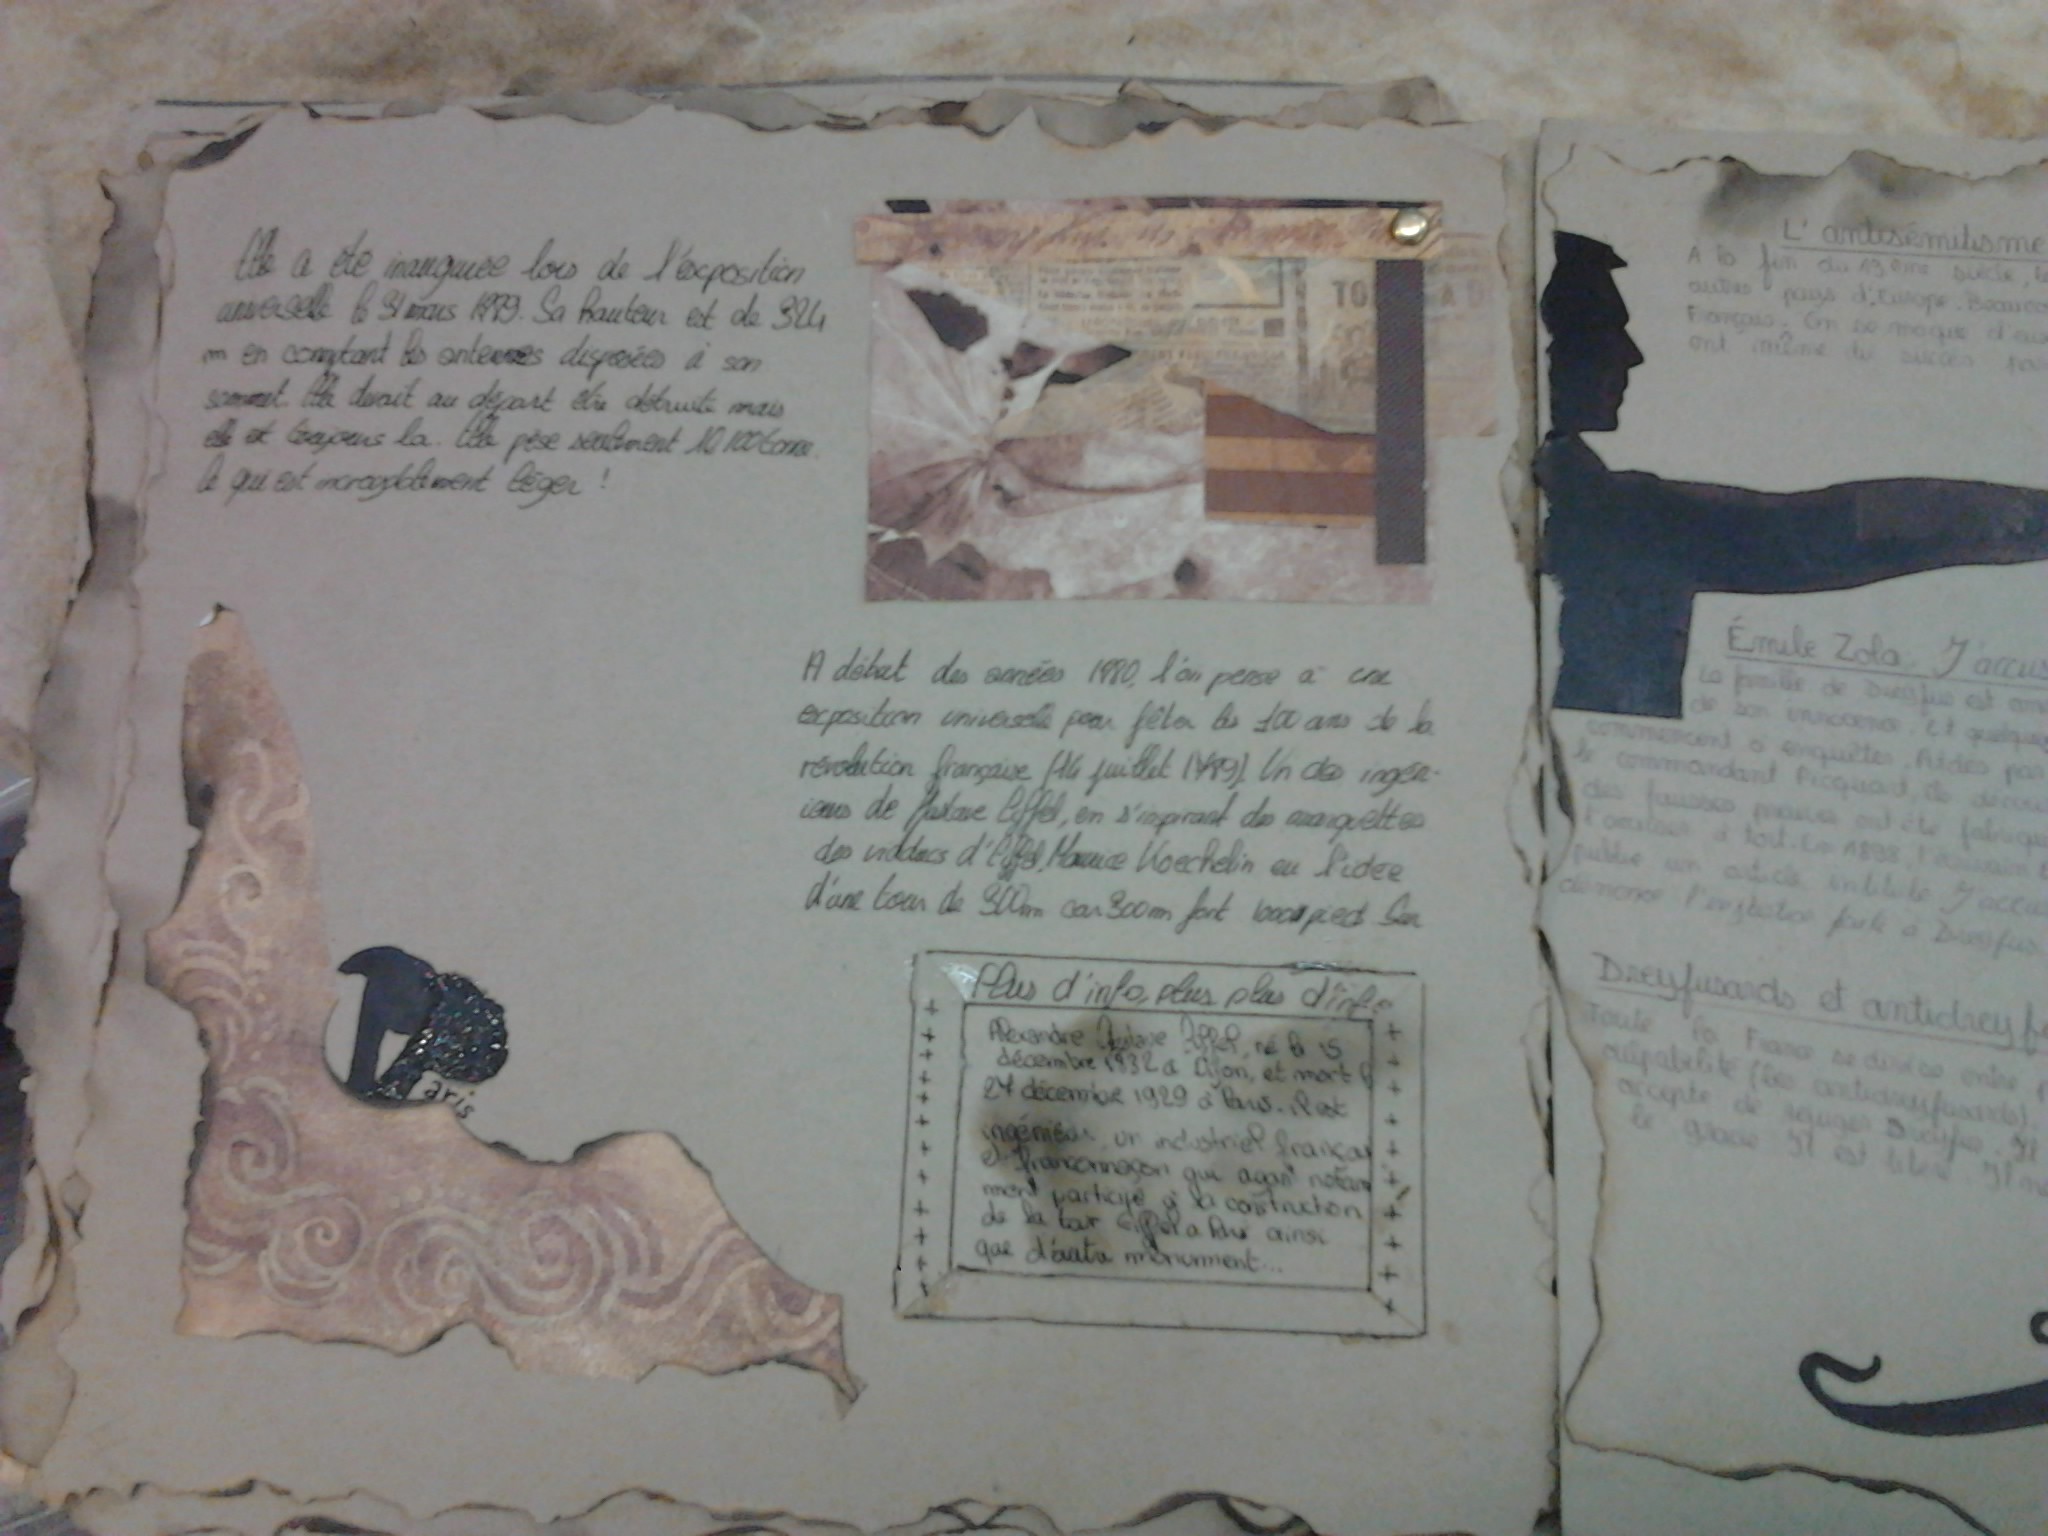 Elle a été inaugurée lors de l'exposition
universelle le 31 mars 1889. Sa hauteur est de 324
m en comptant les antennes disposées à son
sommet. Elle devait au départ être détruite mais
elle est toujours la. Elle pèse seulement 10 100 tonne.
le qui est incroyablement léger !
Paris
A début des années 1880, l'on pense à une
exposition universelle pour fêter les 100 ans de la
révolution française (14 juillet 1789). Un des ingén-
ieurs de Gustave Eiffel, en s'inspirant des maquettes
des viaducs d'Eiffel, Maurice Koechelin eu l'idée
d'une tour de 300m car 300m font 1000 pied
Plus d'info, plus, plus d'info
Alexandre Gustave Eiffel, né le 15
décembre 1832 à Dijon, et mort l
27 décembre 1929 à Paris. il est
ingénieur un industriel français
et franc-maçon qui ayant notam
ment participé à la construction
de la tour Eiffel a Paris ainsi
que d'autre monument...
L'antisémitisme
A la fin du 19ème siècle, le
autres pays d'Europe. Beaucou
Français. On se moque d'eux
ont même du succès
Émile Zola J'accus
La famille de Dreyfus est
de son innocence, et quelques
commencent à enquêter. Aidés par
le commandant Picquart, ils
des fausses preuves ont été fabriqué
à tort. En 1898, l'écrivain
publie un article intitulé J'accus
dénonce l'injustice faite à Dreyfus.
Dreyfusards et antidreyf
Toute la France se divise entre
culpabilité (les antidreyfusards).
accepte de Dreyfus. Il
le gracie. Il est libéré. Il